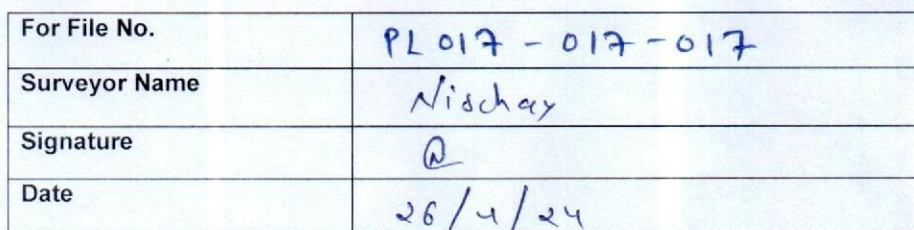 For File No. PL017-017-017
Surveyor Name Nischay
Signature
Date 26/4/24